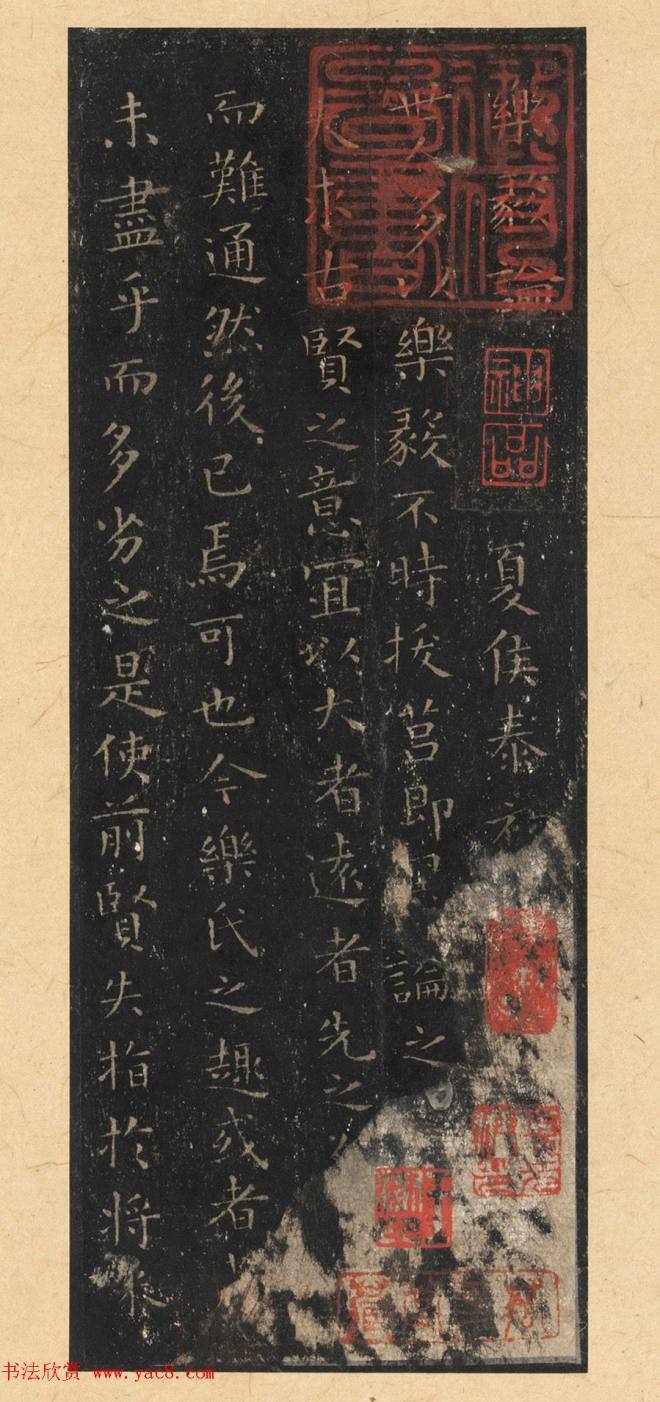 樂毅論
神品
夏侯泰初
世人多以樂毅不時拔莒即墨論之
夫求古賢之意宜以大者遠者先之
而難通然後已焉可也今樂氏之趣或者
未盡乎而多劣之是使前賢失指於將來
书法欣赏 www.yac8.com